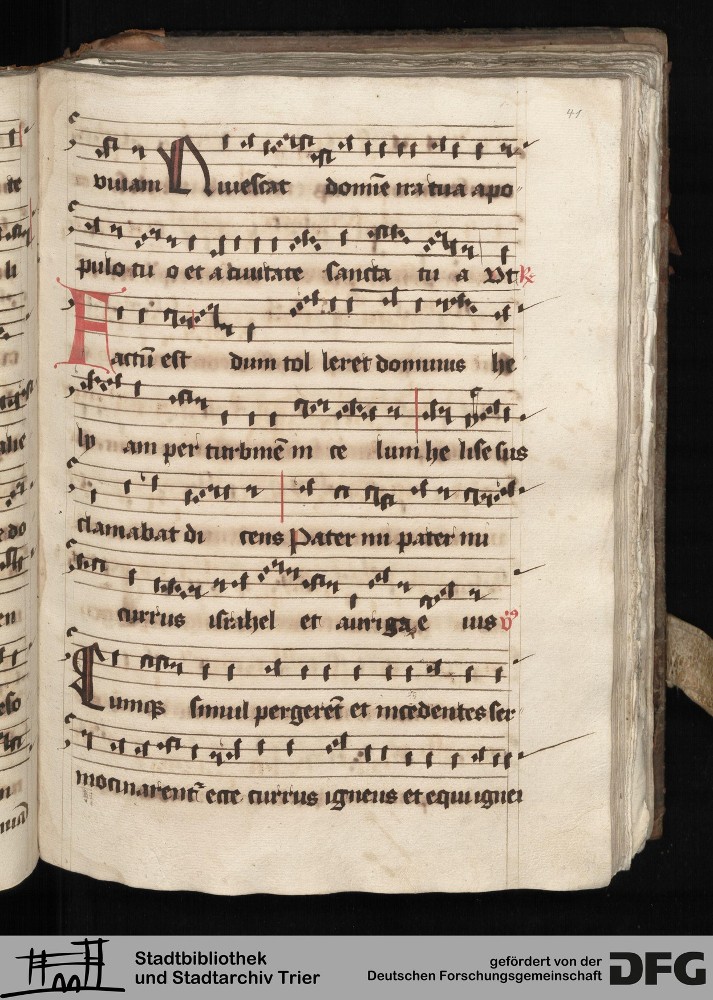 41
viuam Quiescat domīe ira tua a po
pulo tu o et a ciuitate sancta tu a Vt R
Factū est dum tol leret dominus he
ly am per turbinē in ce lum he lise sus
clamabat di cens Pater mi pater mi
currus israhel et auriga e ius v
Cumqz simul pergerēt et incedentes ser
mocinarent ecce currus igneus et equi ignei
Stadtbibliothek
und Stadtarchiv Trier
gefördert von der
Deutschen Forschungsgemeinschaft
DFG